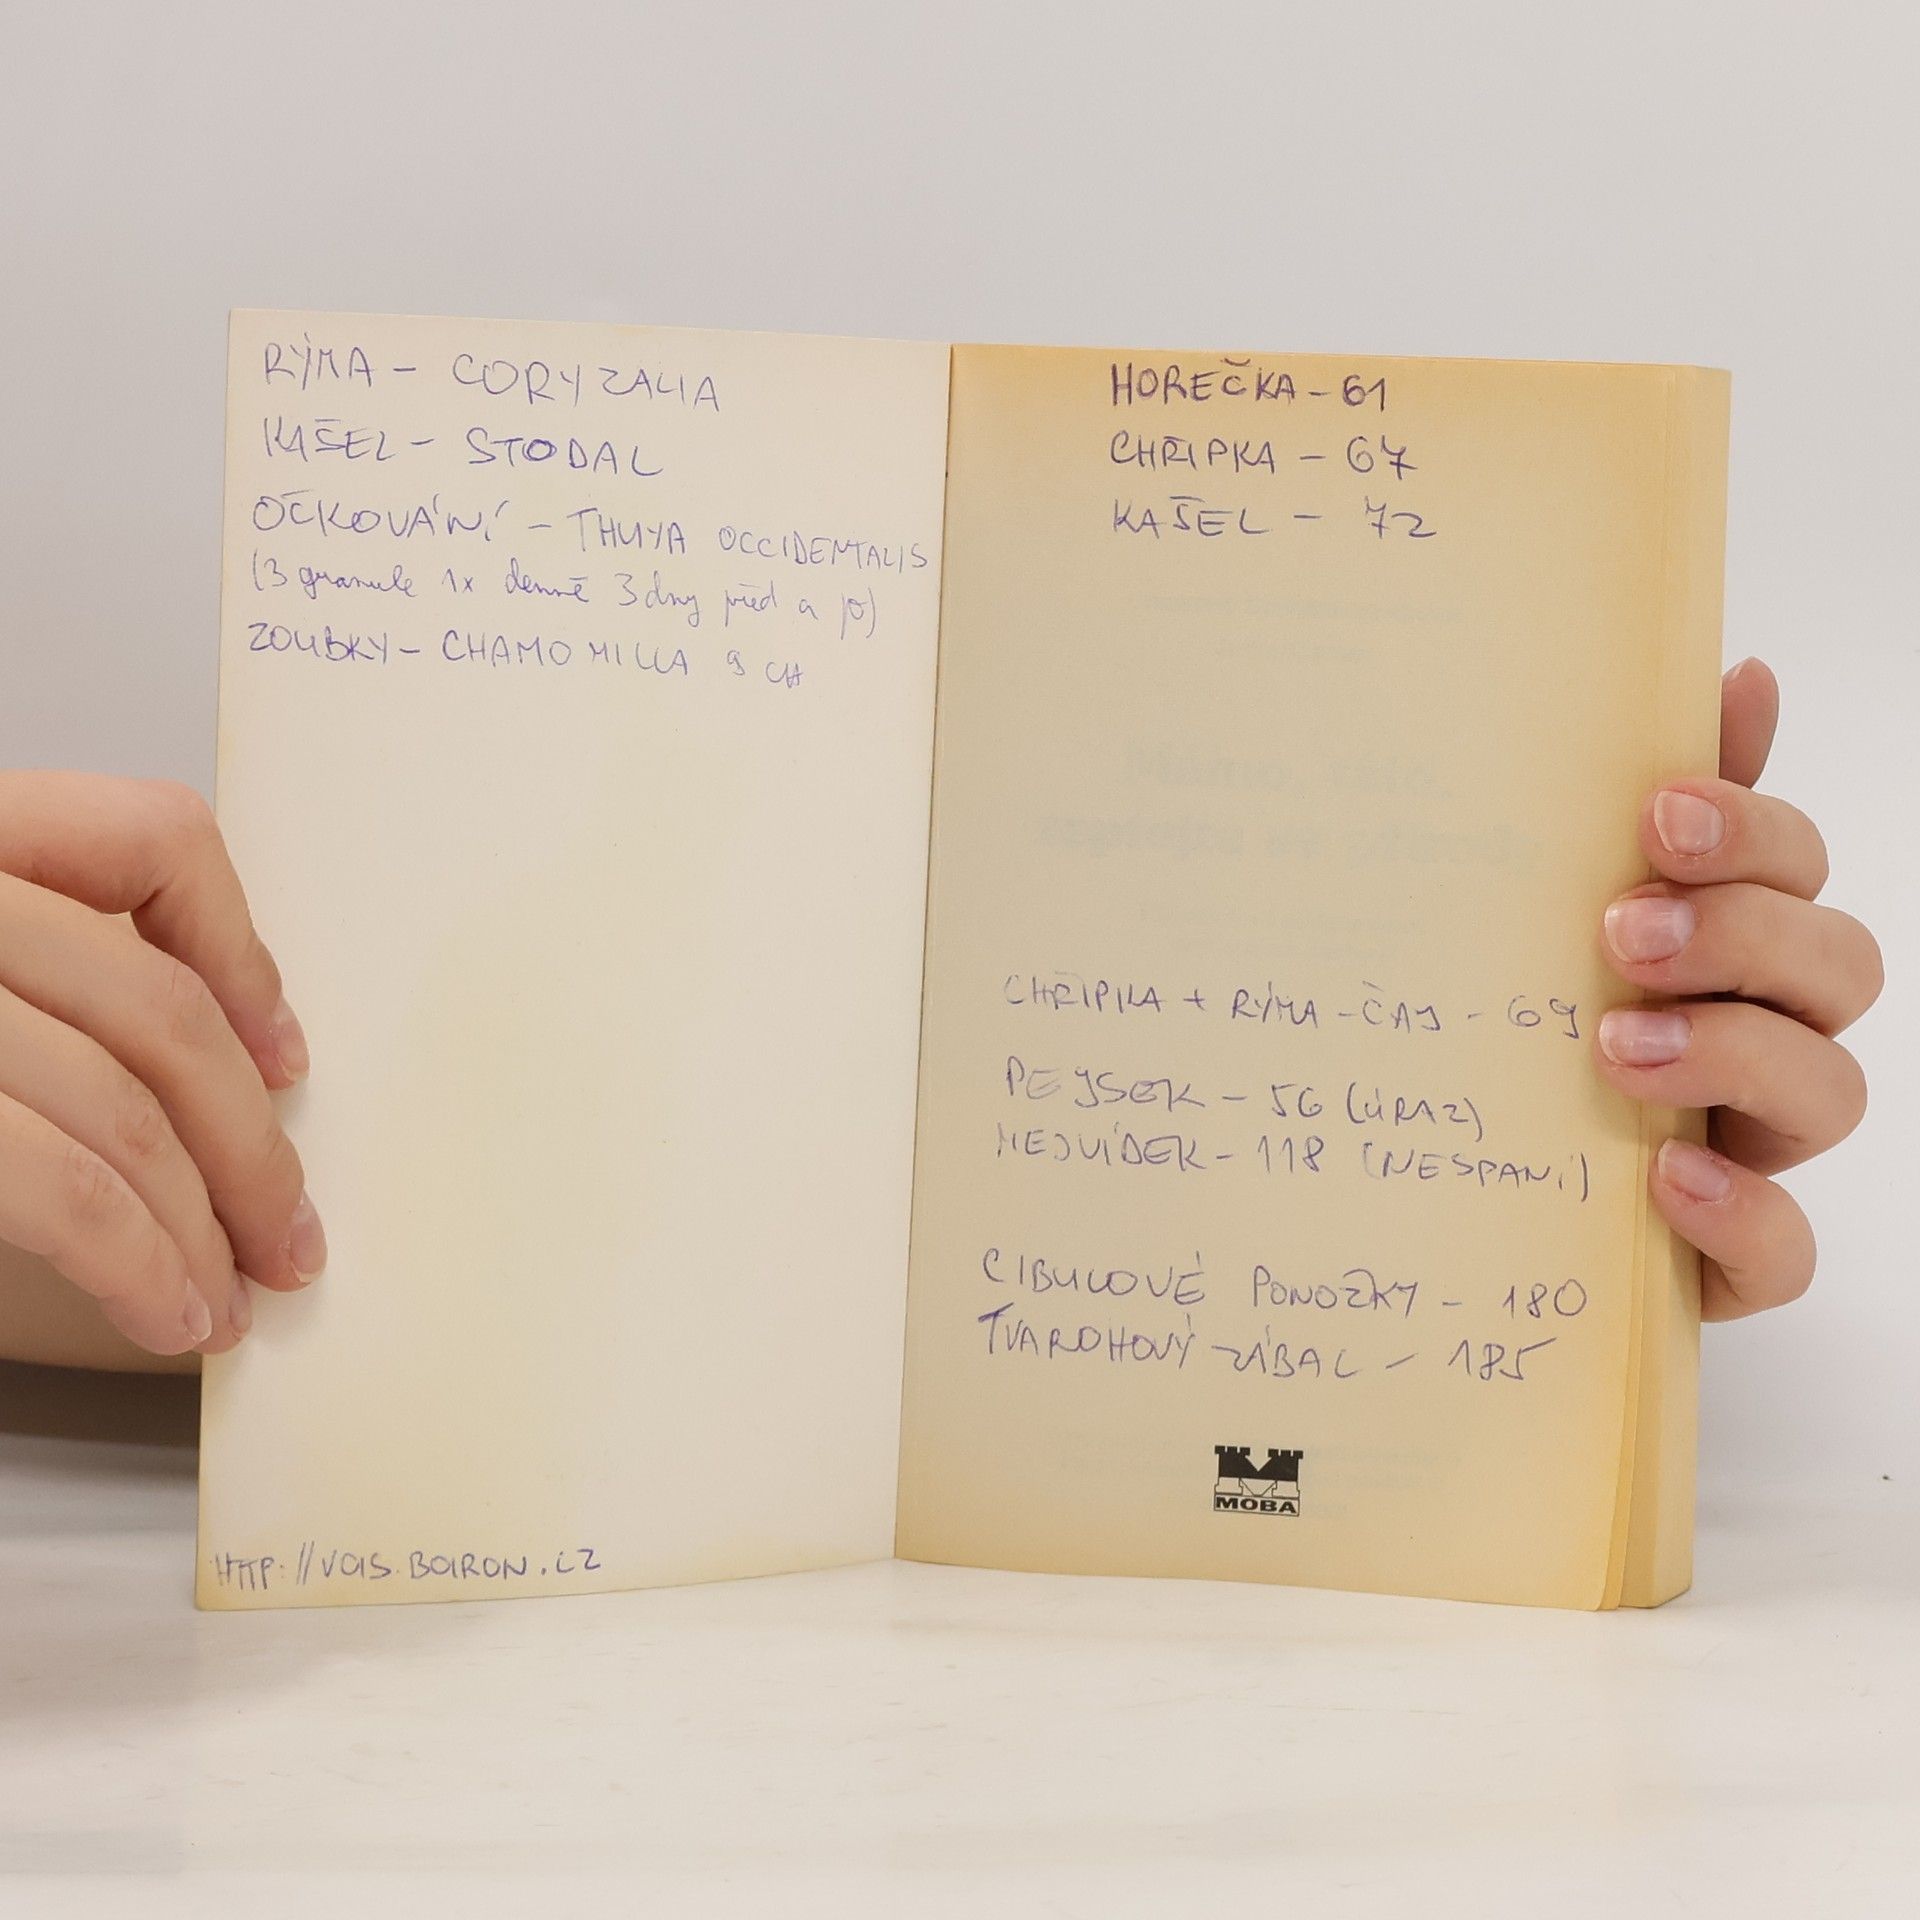 RÝMA – CORYZALIA
KAŠEL – STODAL
OČKOVÁNÍ – THUYA OCCIDENTALIS
(3 granule 1x denně 3 dny před a po)
ZOUBKY – CHAMOMILLA 9 CH
HTTP://VOIS.BOIRON.CZ
HOREČKA – 61
CHŘIPKA – 67
KAŠEL – 72
CHŘIPKA + RÝMA – ČAJ – 69
PEJSEK – 56 (ÚRAZ)
MEDVÍDEK – 118 (NESPANÍ)
CIBULOVÉ PONOŽKY – 180
TVAROHOVÝ ZÁBAL – 185
MOBA